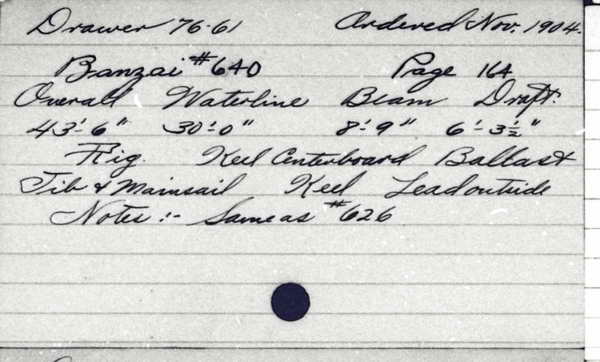 Drawer 76-61 Ordered Nov. 1904.
Banzai #640 Page 164
Overall Waterline Beam Draft.
43'-6" 30'-0" 8'-9" 6'-3½"
Rig. Keel Centerboard Ballast
Jib & Mainsail Keel Lead outside
Notes :- Same as #626